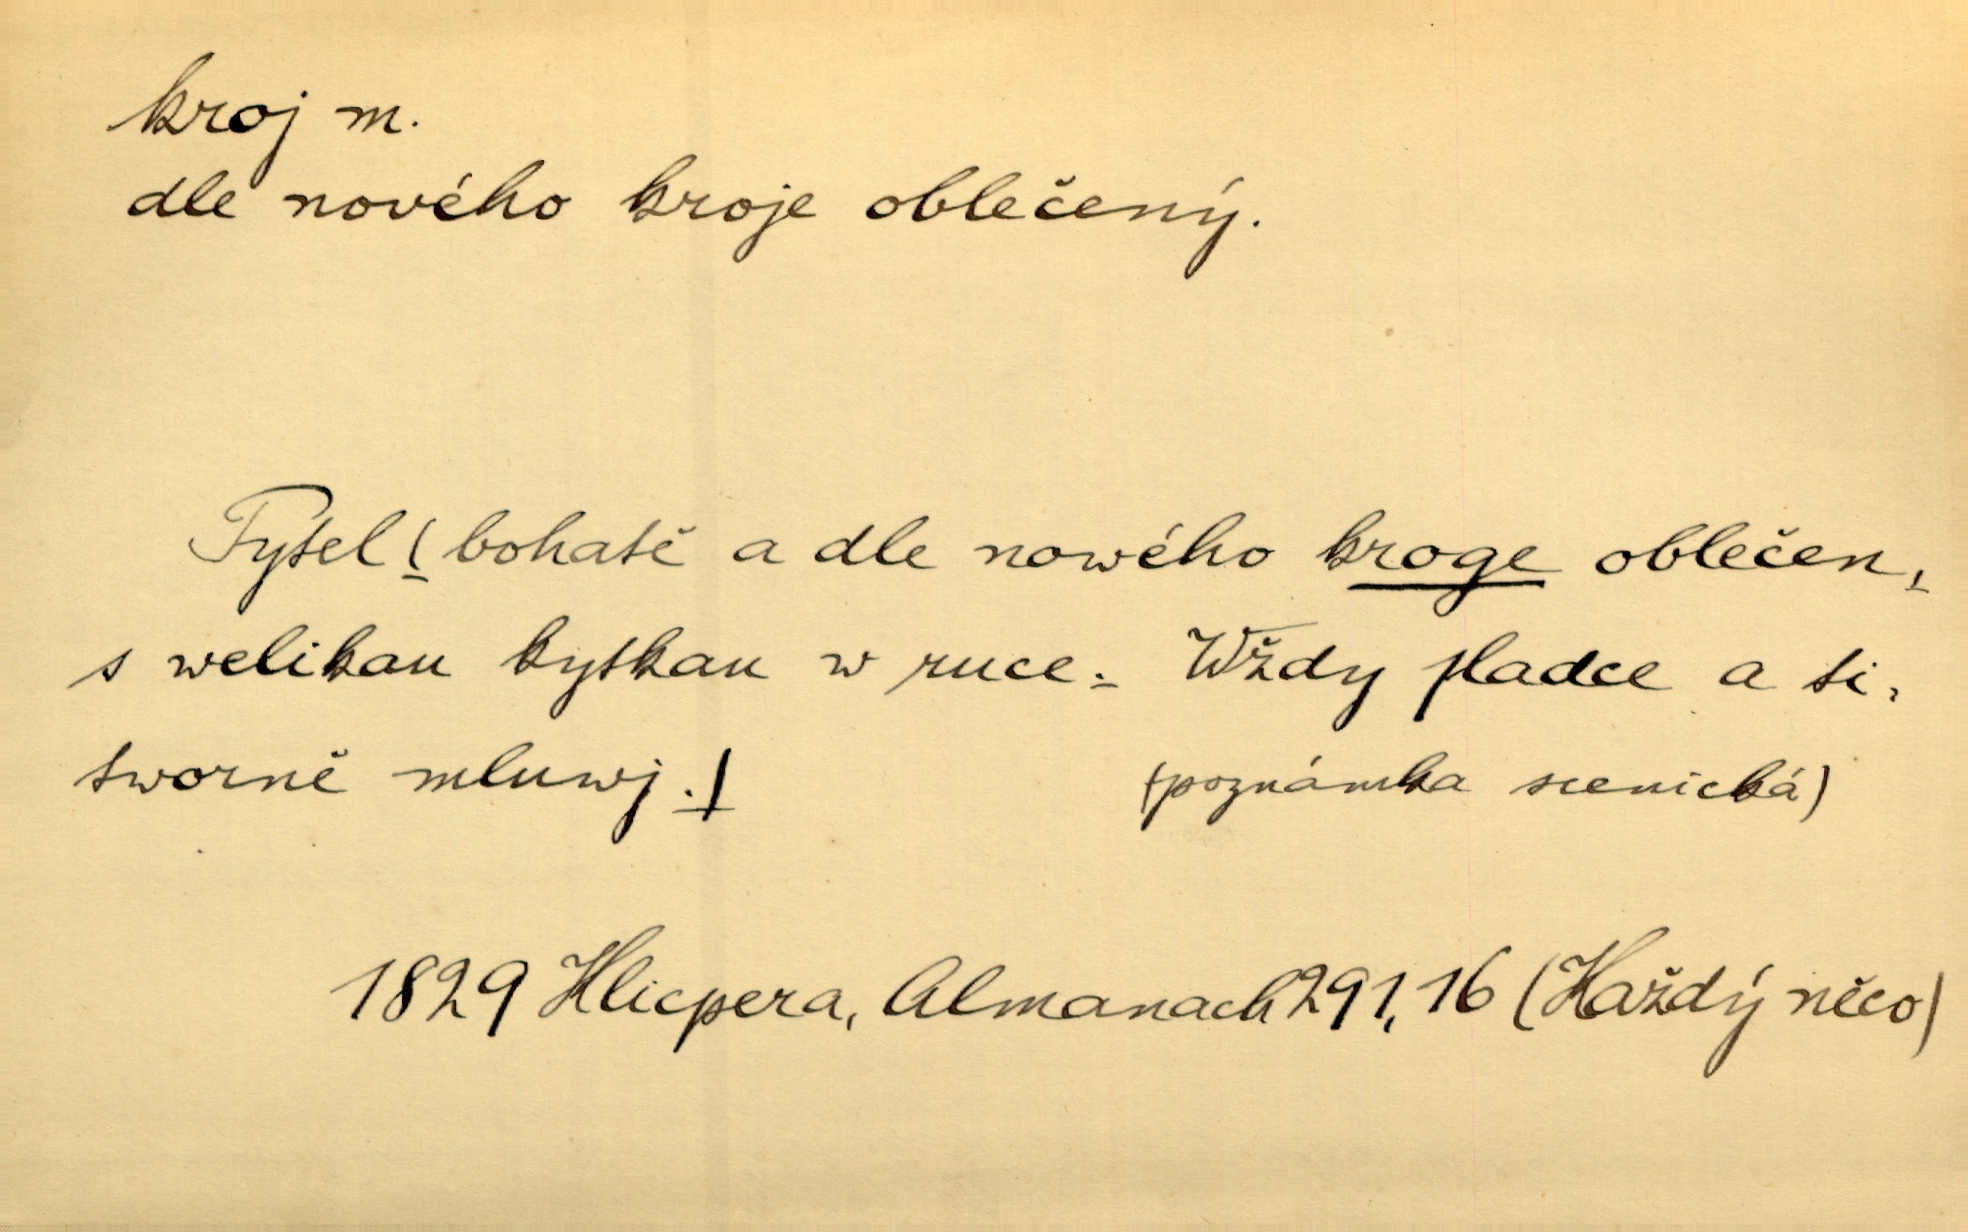 kroj m.
dle nového kroje oblečený.
Tytel (bohatě a dle nowého kroge oblečen,
s welikau kytkau w ruce. Wždy sladce a ti,
tworně mluwj.)
(poznámka scenická)
1829 Klicpera, Almanach 291, 16 (Každý něco)